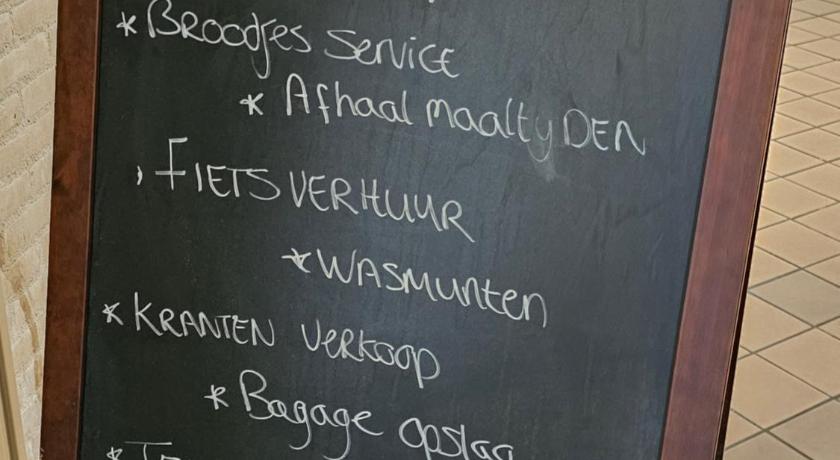 * Broodjes Service
* Afhaal maaltyDEN
, FIETSVERHUUR
* WASMUNTEN
* KRANTEN VERKOOP
* Bagage opslag
*